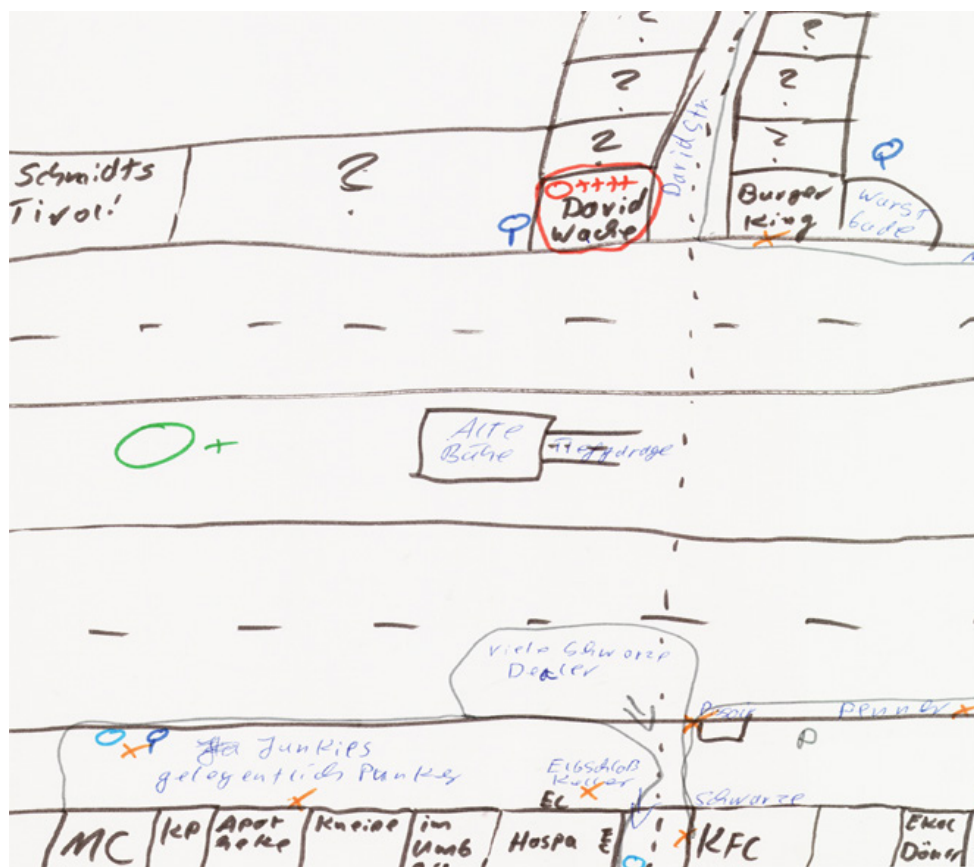 ?
?
?
?
2
?
Schmidts
Tirol!
?
David
Wache
Davidstr
Burger
King
Wurst
bude
Alte
Bühe
Tiefgarage
viele Schwarze
Dealer
Penner
Junkies
gelegentlich Punker
Elbschloß
Keller
EC
Schwarze
MC
KP
Apot
heke
Kneipe
im
Umb
Hospa
KFC
Ekol
Döner